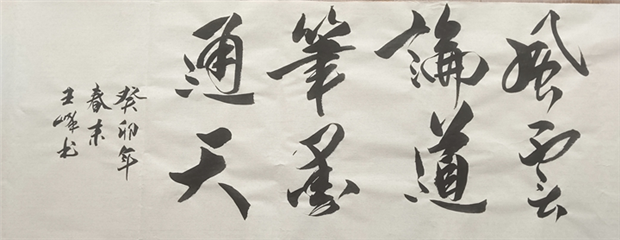 風雲
論道
筆墨
通天
癸卯年
春末
王峰书